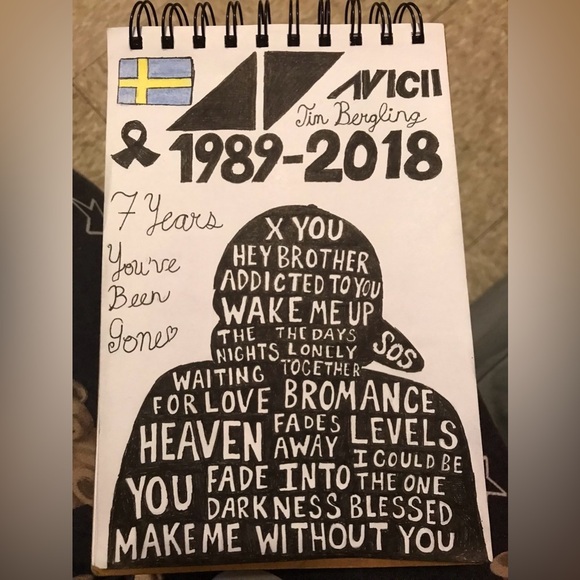 AVICII
Tim Bergling
1989-2018
7 Years
You've
Been
Gone
X YOU
HEY BROTHER
ADDICTED TO YOU
WAKE ME UP
THE NIGHTS
THE DAYS
LONELY TOGETHER
SOS
WAITING FOR LOVE
BROMANCE
HEAVEN
FADES AWAY
LEVELS
I COULD BE THE ONE
YOU MAKE ME
FADE INTO DARKNESS
BLESSED
WITHOUT YOU